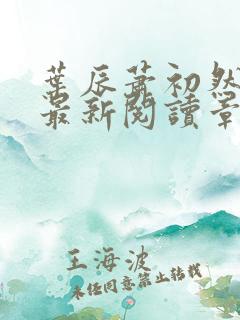 葉辰蕭初然
最新閱讀章
王海波
未经同意禁止转载